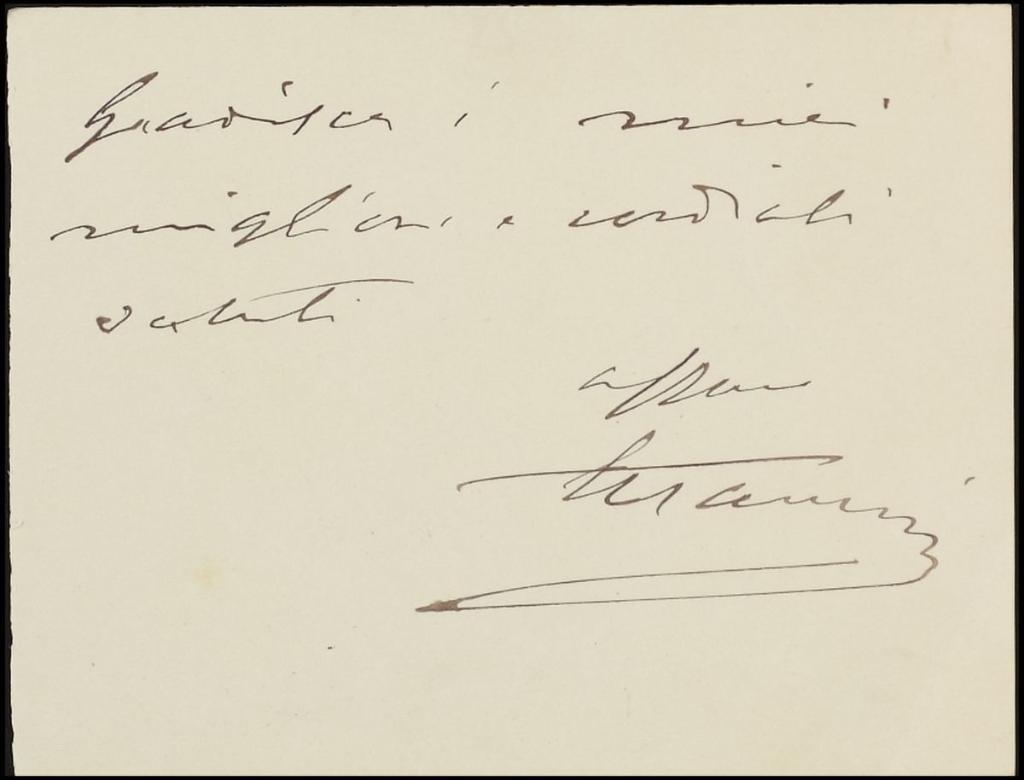 Gradisca i miei
migliori e cordiali
saluti